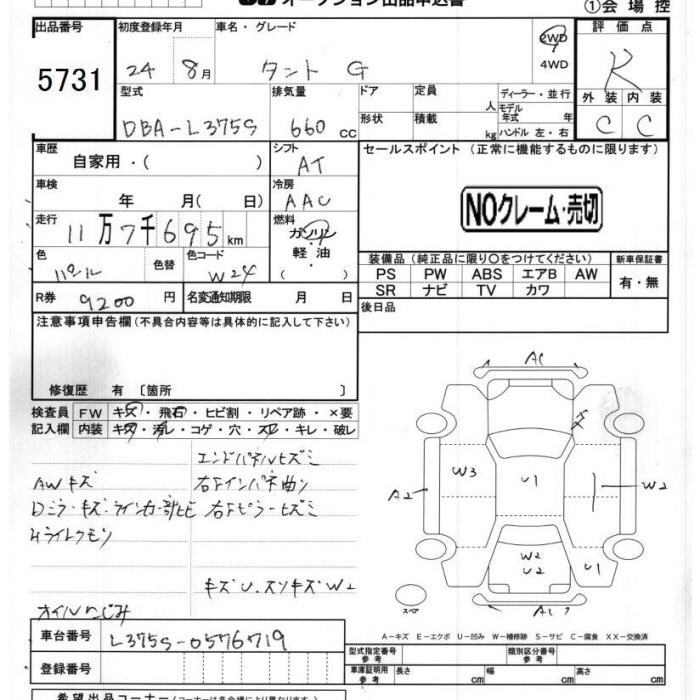 オークション出品申込書
①会場控
出品番号 5731
初度登録年月 24 8月
車名・グレード タント G
2WD
4WD
評価点 R
外装 内装
C C
型式 DBA-L375S
排気量 660 cc
ドア 形状
定員 人
積載 kg
ディーラー・並行
モデル年式 年
ハンドル 左・右
車歴 自家用・( )
シフト AT
セールスポイント (正常に機能するものに限ります)
NOクレーム・売切
車検 年 月( 日)
冷房 AAC
走行 11万7千695km
燃料 ガソリン・軽油・( )
色 パール
色替
色コード W24
装備品 (純正品に限り○をつけてください)
新車保証書
PS PW ABS エアB AW
SR ナビ TV カワ
有・無
R券 9200円
名変通知期限 月 日
後日品
注意事項申告欄 (不具合内容等は具体的に記入して下さい)
修復歴 有 〔箇所 〕
検査員記入欄
FW キズ・飛石・ヒビ割・リペア跡・×要
内装 キズ・汚レ・コゲ・穴・スレ・キレ・破レ
エンドパネルヒズミ
AWキズ
右インパネ曲り
Dミラーキズ・ウインカー部ヒビ
右ピラーヒズミ
キズU.スリキズW2
オイルにじみ
A1
W3
U1
A2
W2
W2
U2
U1
A1
スペア
A-キズ E-エクボ U-凹み W-補修跡 S-サビ C-腐食 XX-交換済
車台番号 L375S-0576719
登録番号
型式指定番号 参考
類別区分番号 参考
車庫証明用 参考
長さ cm
幅 cm
高さ cm
希望出品コーナー